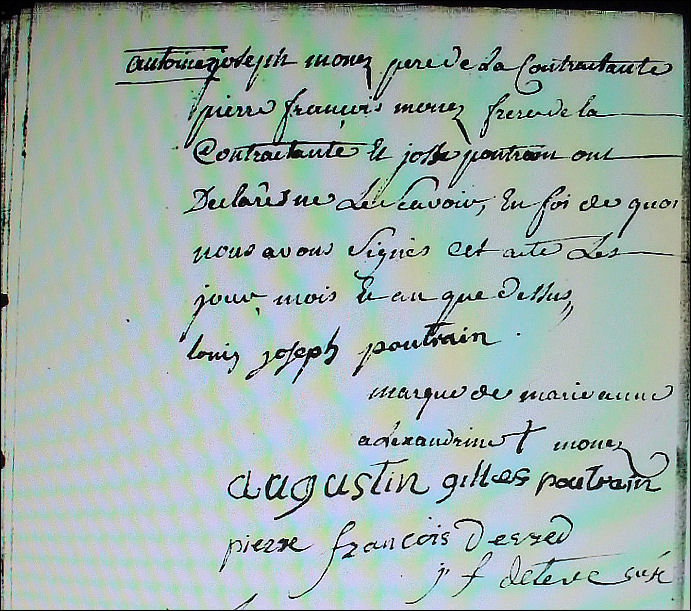 antoine joseph monez pere de La Contractante
pierre françois monez frere de la
Contractante Et josse poutrain ont
Declarés ne Le Scavoir, En foi de quoi
nous avons Signés cet acte Les
jour, mois Et an que dessus,,
louis joseph poutrain .
marque de marie anne
alexandrine † monez
augustin gilles poutrain
pierre françois
j f